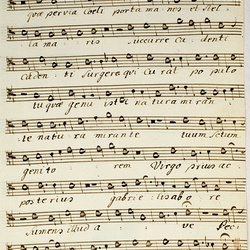 quæ pervia coeli porta manes et stel-
la maris succurre cadenti
cadenti surgere qui curat populo
tu quæ genuisti natura miran
te natura mirante tuum sctum
genitorem Virgo prius ac
posterius gabrielis ab ore
sumens illud a ve Pec: